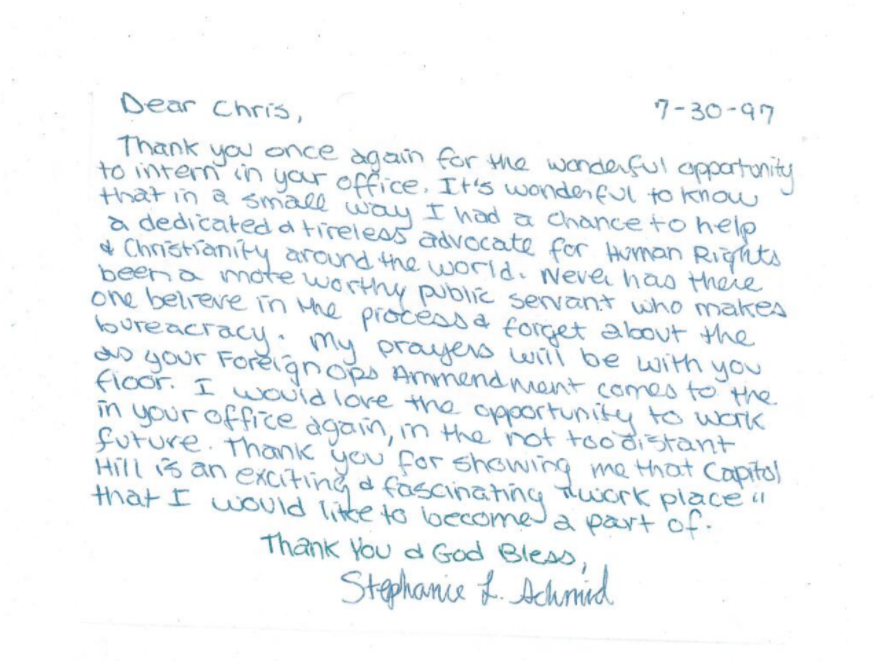 Dear Chris, 7-30-97
Thank you once again for the wonderful opportunity
to intern in your office. It's wonderful to know
that in a small way I had a chance to help
a dedicated & tireless advocate for Human Rights
& Christianity around the world. Never has there
been a more worthy public servant who makes
one believe in the process & forget about the
bureacracy. My prayers will be with you
as your Foreign Ops Ammendment comes to the
floor. I would love the opportunity to work
in your office again, in the not too distant
future. Thank you for showing me that Capitol
Hill is an exciting & fascinating "work place"
that I would like to become a part of.
Thank You & God Bless,
Stephanie L. Schmid